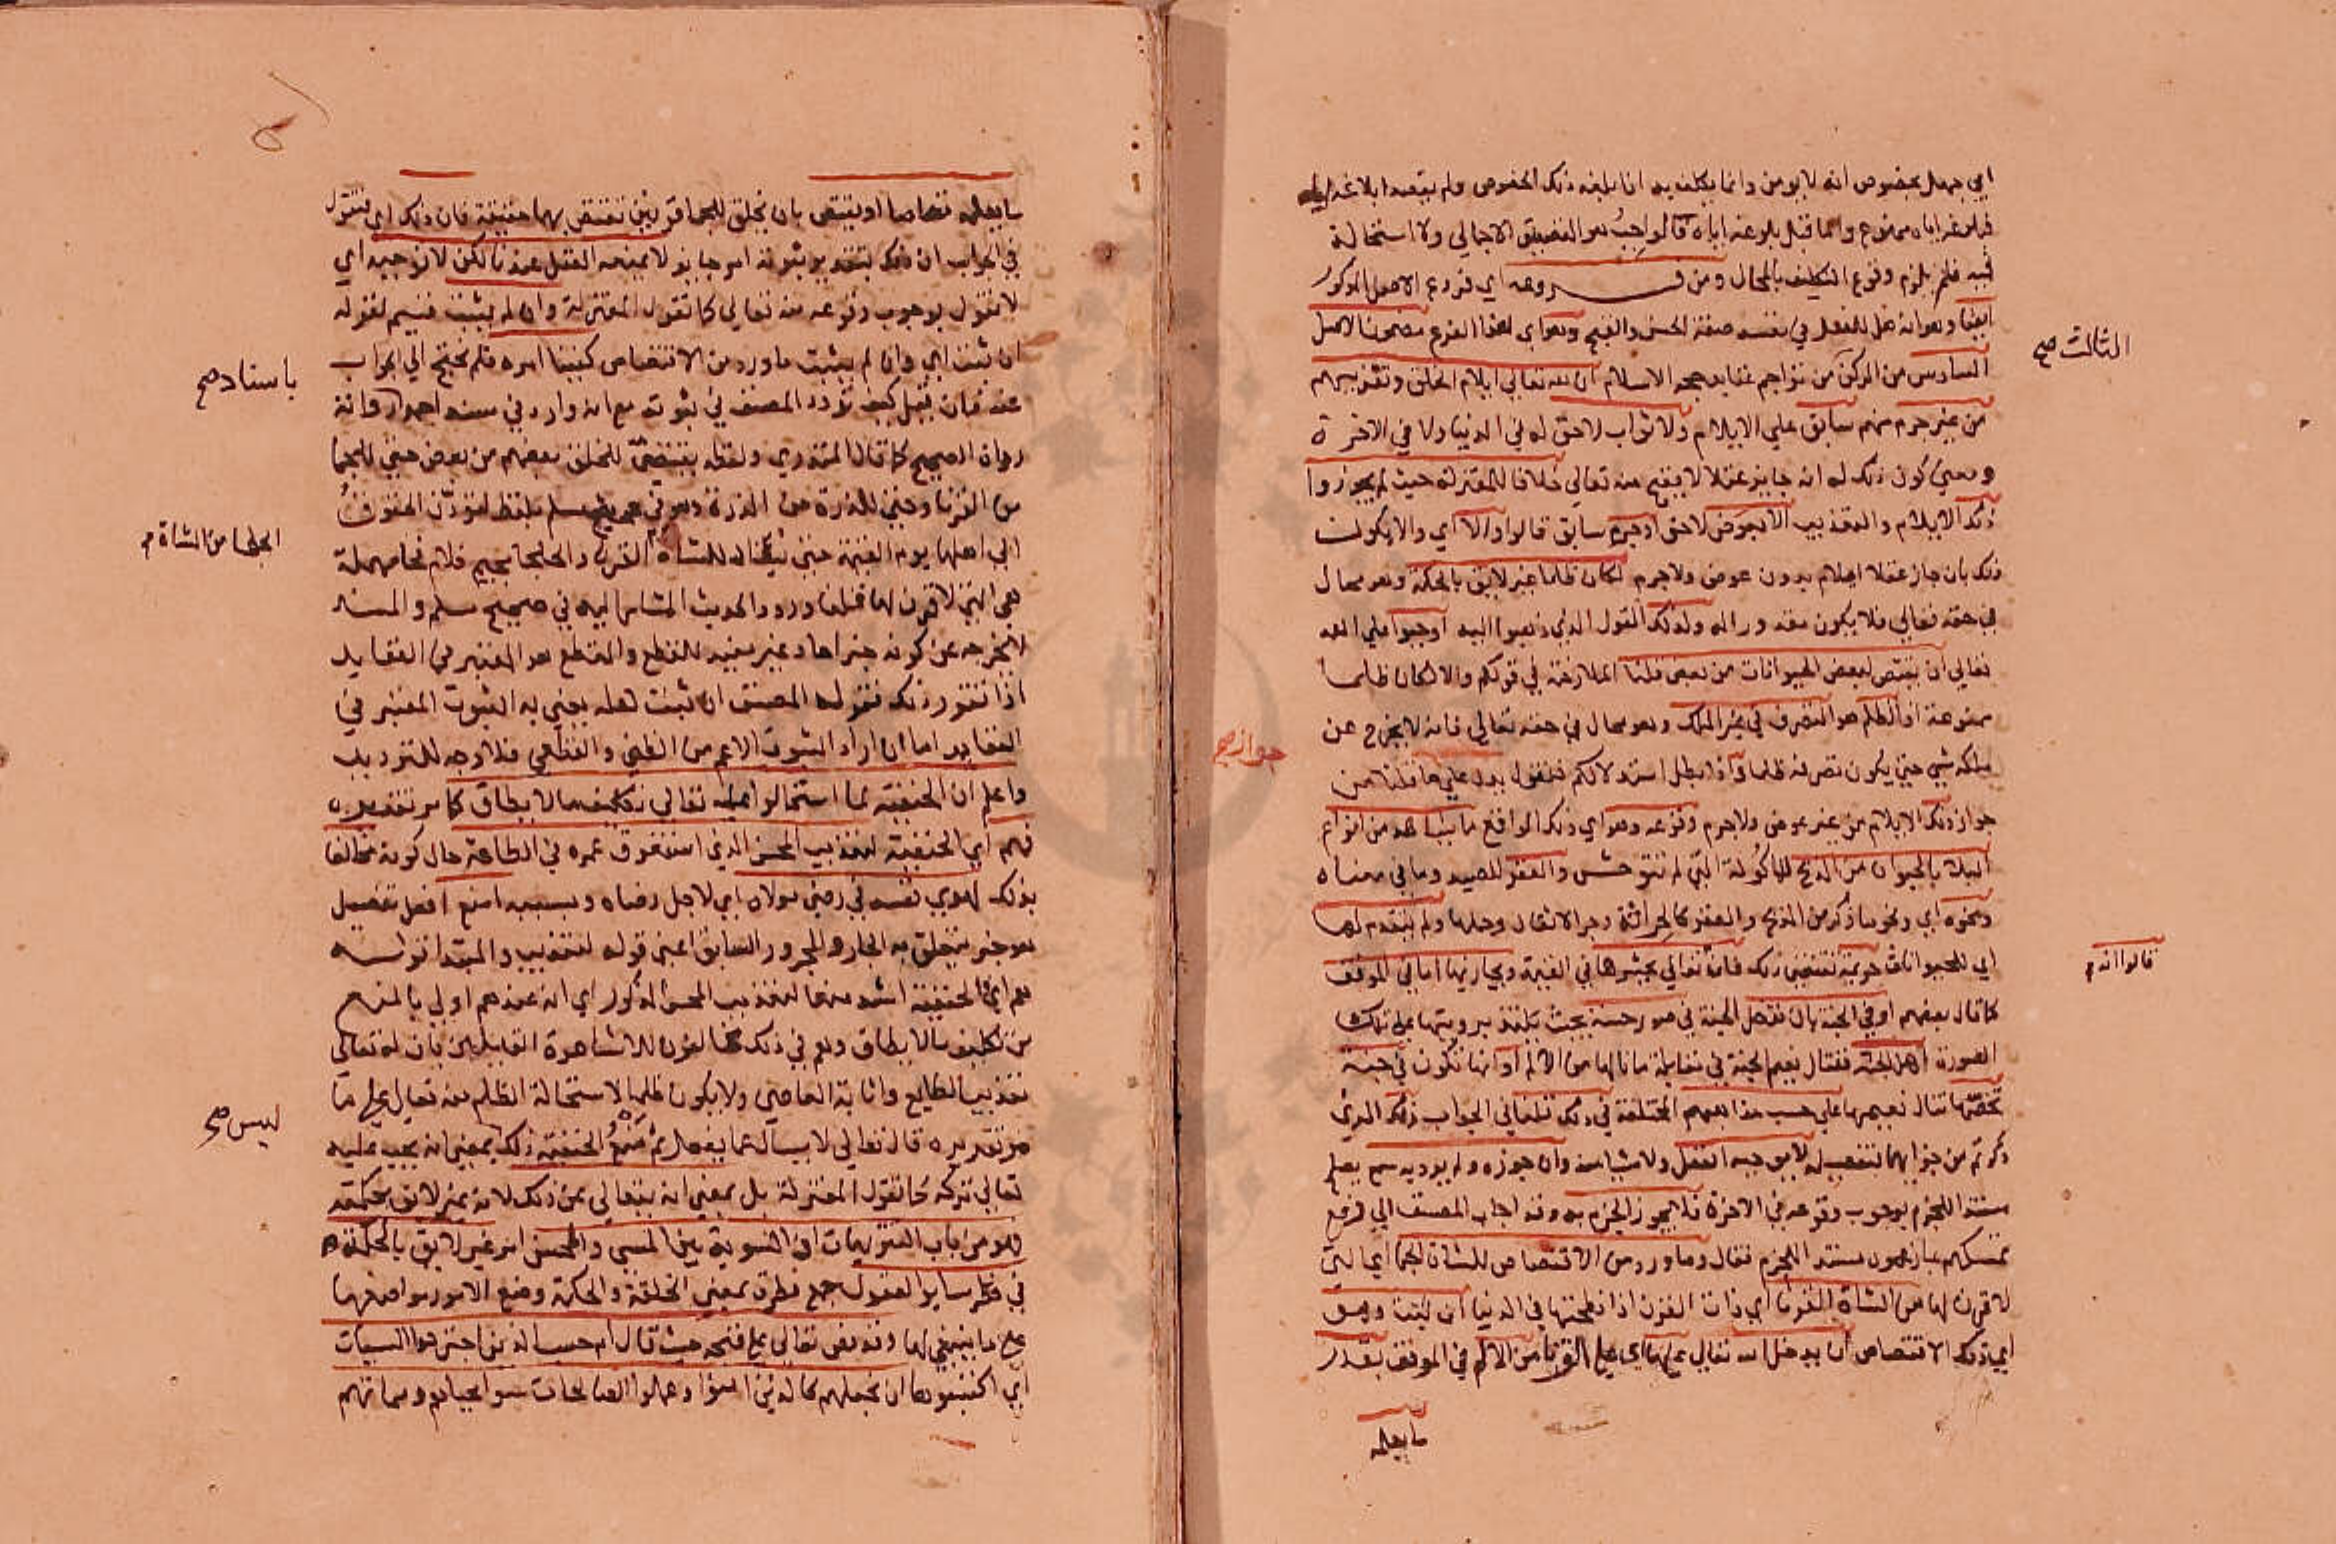 ابي جهل بخصوص انه لا يومن وانما يكلف به اذا بلغه ذلك الخصوص ولم يقصد ابلاغه اياه
فبلوغه اياه ممنوع واما قبل بلوغه اياه قالواجب هو التصديق الاجمالي ولا استحالة
فيه فلم يلزم وقوع التكليف بالمحال ومن فروعه اي فروع الاصل المذكور
ايضا وهو انه هل للفعل في نفسه صفة الحسن والقبح وهو اي هذا الفرع مضمون الاصل
السادس من الركن من تراجم عقايد حجة الاسلام ان لله تعالي ايلام الخلق وتعذيبهم
الثالث صح
من غير جرم منهم سابق علي الايلام ولا ثواب لاحق له في الدنيا ولا في الاخرة
ومعني كون ذلك له انه جايز عقلا لا يقبح منه تعالي خلافا للمعتزلة حيث لم يجوزوا
ذلك الايلام والتعذيب الا بعوض لاحق او جرم سابق قالوا والا اي والا يكون
ذلك بان جاز عقلا ايلام بدون عوض ولا جرم لكان ظلما غير لايق بالحكمة وهو محال
في حقه تعالي فلا يكون مقدورا له ولذلك القول الذي ذهبوا اليه اوجبوا علي الله
تعالي ان يقتص لبعض الحيوانات من بعض قلنا الملازمة في قولكم والا لكان ظلما
ممنوعة اذ الظلم هو التصرف في غير الملك وهو محال في حقه تعالي فانه لا يخرج عن
ملكه شي حتي يكون تصرفه ظلما واذا بطل استدلالكم فنقول يدل علي ما قلنا من
جواز صح
جواز ذلك الايلام من غير عوض ولا جرم وقوعه وهو اي ذلك الواقع ما يشاهد من انواع
البلا بالحيوان من الذبح للماكولة التي لم تتوحش والعقر للصيد وما في معناه
ونحوه اي ونحو ما ذكر من الذبح والعقر كالحراثة وجر الاثقال وحملها ولم يتقدم لها
اي للحيوانات جريمة تقتضي ذلك فانه تعالي يحشرها في القيمة ويجازيها اما في الموقف
قالوا انه
كما قال بعضهم او في الجنة بان تدخل الجنة في صور حسنة بحيث يلتذ برويتها علي تلك
الصورة اهل الجنة فتنال نعيم الجنة في مقابلة ما نالها من الالم او انها تكون في جنة
تخصها تنال نعيمها علي حسب مذاهبهم المختلفة في ذلك قلنا في الجواب ذلك الذي
ذكرتم من جزايها بتفصيله لا يوجبه العقل ولا شيا منه وان جوزه ولم يرد به سمع يصلح
مستندا للجزم بوجوب وقوعه في الاخرة فلا يجوز الجزم به وقد اجاب المصنف الي فرع
تمسكهم بما زعموه مستند الجزم فقال وما ورد من الاقتصاص للشاة الجما اي التي
لا قرن لها من الشاة القرنا اي ذات القرن اذا نطحتها في الدنيا ان ثبت وهو
اي ذلك الاقتصاص ان يدخل الله تعالي عليها اي علي القرنا من الالم في الموقف بقدر
ما يعلمه
ما يعلمه قصاصا او يقتص بان يخلق للجما قرنين تقتص بهما حقيقة فان ذلك اي فنقول
في الجواب ان ذلك بتقدير ثبوته امر جايز لا يمنعه العقل عندنا لكن لا نوجبه اي
لا نقول بوجوب وقوعه منه تعالي كما تقول المعتزلة وان لم يثبت قسيم لقوله
ان ثبت اي وان لم يثبت ما ورد من الاقتصاص كفينا امره فلم نحتج الي الجواب
عنه فان قيل كيف تردد المصنف في ثبوته مع انه وارد في مسند احمد رواته
باسناد صح
رواة الصحيح كما قال المنذري ولفظه يقتص للخلق بعضهم من بعض حتي للجما
من القرنا وحتي للذرة من الذرة وهو في صحيح مسلم بلفظ لتؤدن الحقوق
الي اهلها يوم القيمة حتي يقاد للشاة القرنا والجلحا بجيم فلام فحا مهملة
الجلحا من الشاة
هي التي لا قرن لها قلنا ورود الحديث المشار اليه في صحيح مسلم والمسند
لا يخرجه عن كونه خبر احاد غير مفيد للقطع والقطع هو المعتبر في العقايد
اذا تقرر ذلك فقول المصنف ان ثبت لعله يعني به الثبوت المعتبر في
العقايد اما ان اراد الثبوت الاعم من الظني والقطعي فلا وجه للترديد
واعلم ان الحنفية لما استحالوا عليه تعالي تكليف ما لا يطاق كما مر تقريره
فهم اي الحنفية لتعذيب المحسن الذي استغرق عمره في الطاعة حال كونه مخالفا
بذلك لهوي نفسه في رضي مولاه اي لاجل رضاه وبسببه امنع افعل تفضيل
هو خبر يتعلق به الجار والمجرور السابق اعني قوله لتعذيب والمبتدا قوله
هم اي الحنفية اشد منعا لتعذيب المحسن المذكور اي انه عندهم اولي بالمنع
من تكليف ما لا يطاق وهم في ذلك مخالفون للاشاعرة القايلين بان له تعالي
تعذيب الطايع واثابة العاصي ولا يكون ظلما لاستحالة الظلم منه تعالي علي ما
مر تقريره قال تعالي لا يسال عما يفعل ثم منع الحنفية ذلك بمعني انه يجب عليه
ليس صح
تعالي تركه كما تقول المعتزلة بل بمعني انه يتعالي عن ذلك لانه غير لايق بحكمته
فهو من باب التنزيهات اذ التسوية بين المسي والمحسن امر غير لايق بالحكمة
في فطر ساير العقول جمع فطرة بمعني الخلقة والحكمة وضع الامور مواضعها
علي ما ينبغي لها وقد نص تعالي علي قبحه حيث قال ام حسب الذين اجترحوا السيات
اي اكتسبوها ان نجعلهم كالذين امنوا وعملوا الصالحات سوا محياهم ومماتهم